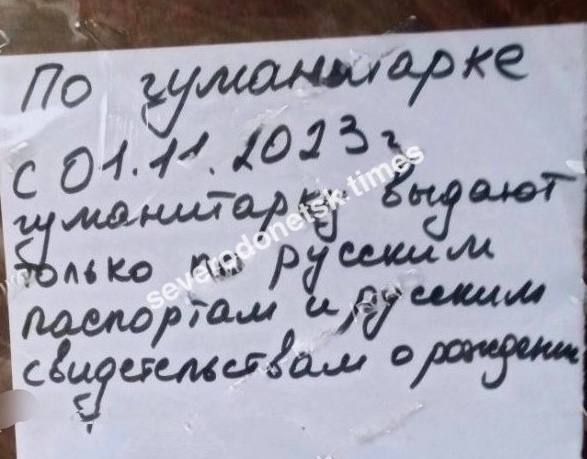 По гуманитарке
с 01.11.2023 г
гуманитарку выдают
только по русским
паспортам и русским
свидетельствам о рождении
severodonetsk.times